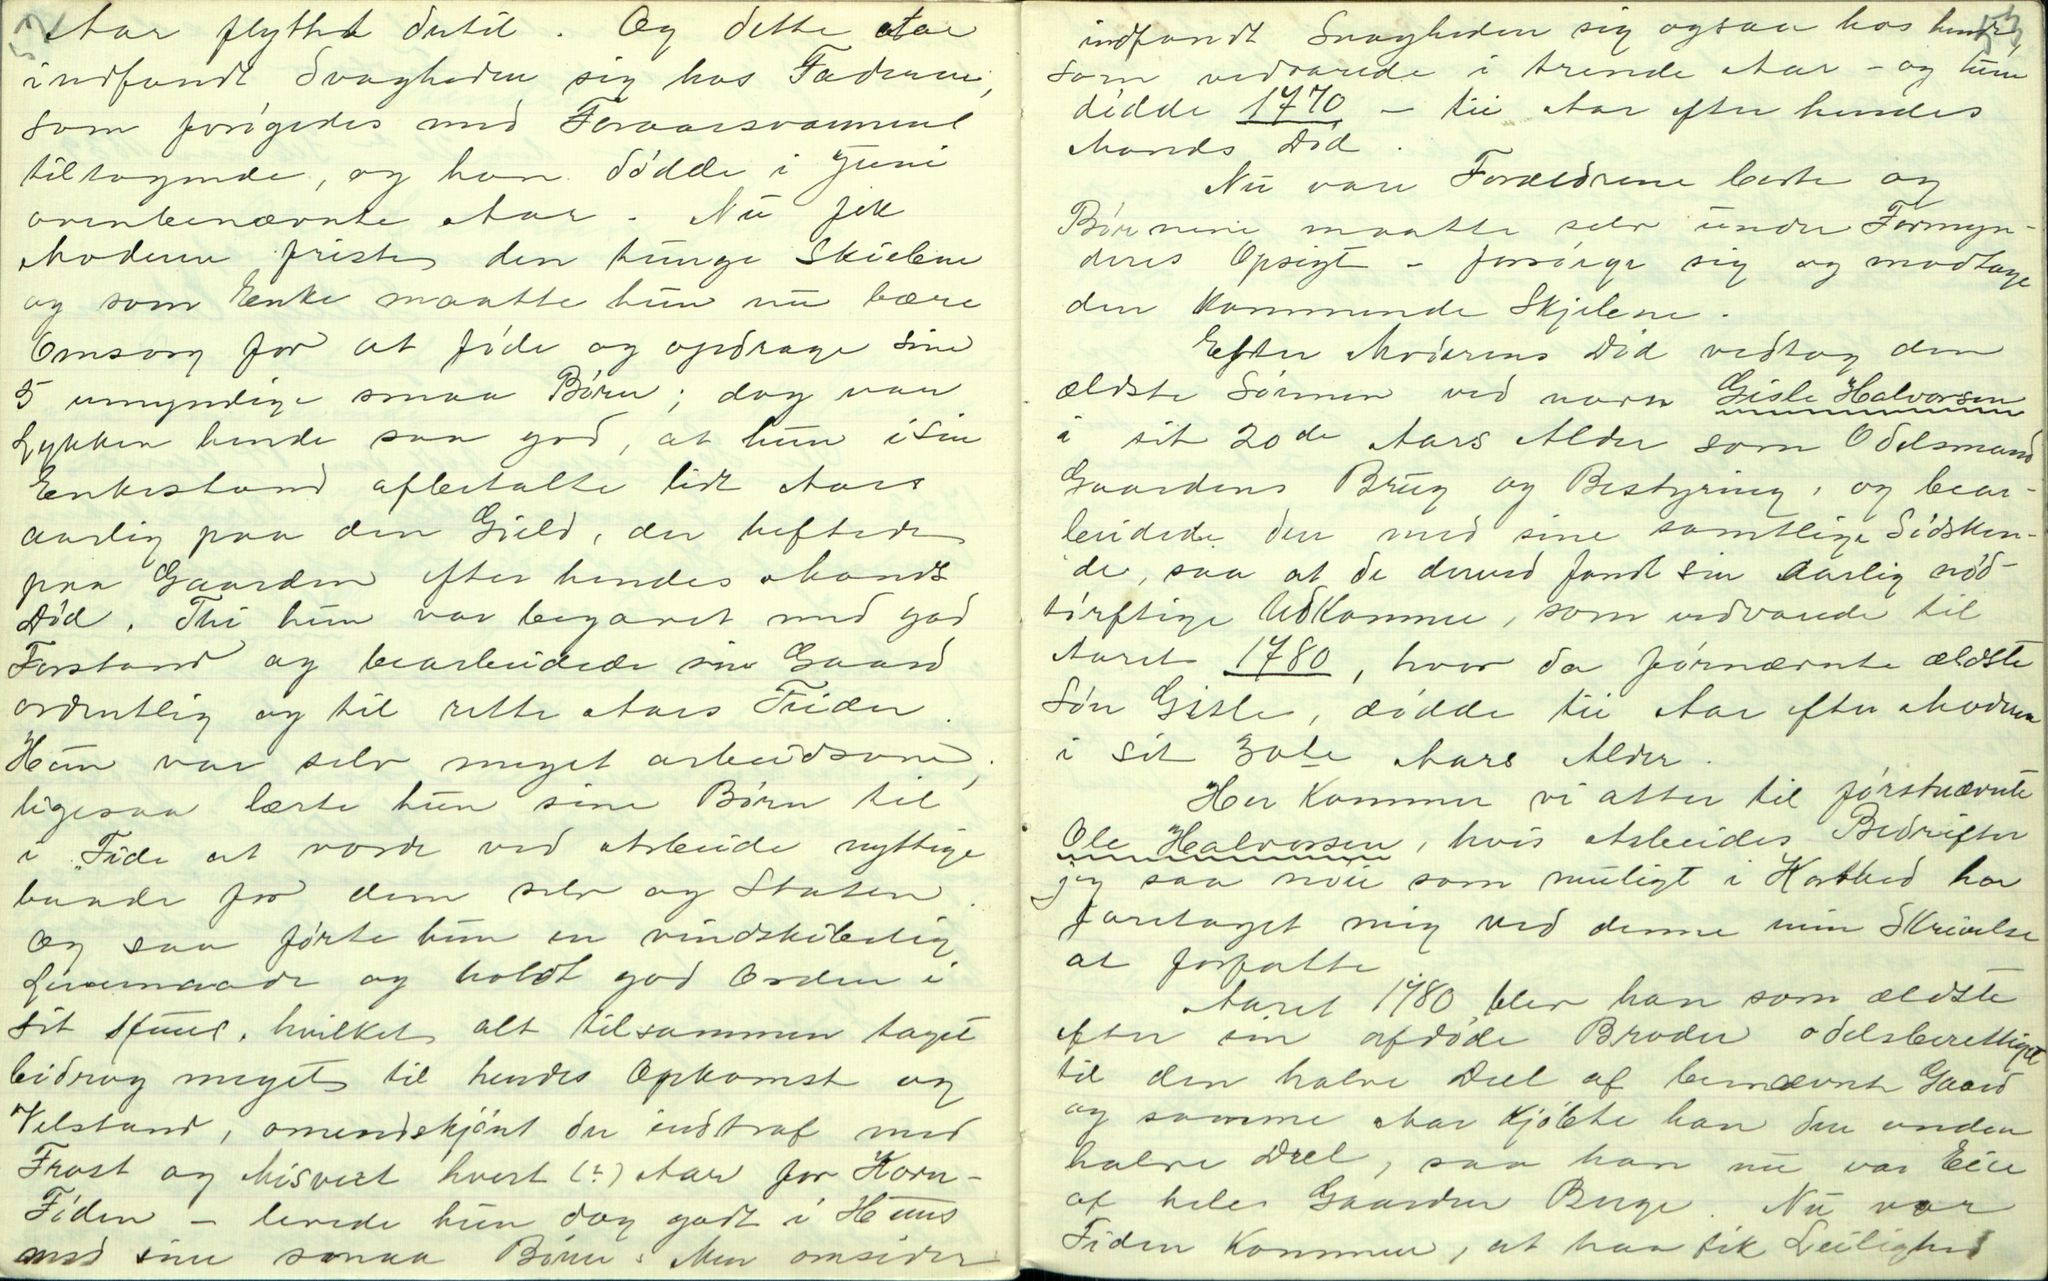 53
Aar flyttet dertil. Og dette Aar
indfandt Svagheden sig hos Faderen,
som forøgedes med Foraarsvarmens
tiltagende, og han dödde i Juni
ovenbenævnte Aar. Nu fik
Moderen friste den tunge Skiebne
og som Enke maatte hun nu bære
Omsorg for at föde og opdrage sine
5 umyndige smaa Börn; dog var
Lykken hende saa god, at hun i sin
Enkestand afbetalte lidt Aars
aarlig paa den Gield, der heftede
paa Gaarden efter hendes Mands
Död. Thi hun var begavet med god
Forstand og bearbeidede sin Gaard
ordentlig og til rette Aars Tider.
Hun var selv meget arbeidsom,
ligesaa lærte hun sine Børn til
i Tide at vorde ved Arbeide nyttige
baade for dem selv og Staten.
Og saa förte hun en vindskibelig
Levemaade og holdt god Orden i
sit Huus, hvilket alt tilsammen taget
bidrog meget til hendes Opkomst og
Velstand, omendskjönt der indtraf med
Frost og Misvext hvert (?) Aar for Korn-
Tiden - levede hun dog godt i Huus
med sine smaa Börn. Men omsider
53
indfandt Svagheden sig ogsaa hos hende,
som vedvarede i trende Aar - og hun
dödde 1770 - tii Aar efter hendes
Mands Död.
Nu vare Forældrene borte og
Børnene maatte selv under Formyn-
deres Opsigt - forsörge sig og modtage
den kommende Skjebne.
Efter Moderens Död vedtog den
ældste Sönnen ved navn Gisle Halvorsen
i sit 20de Aars Alder som Odelsmand
Gaardens Brug og Bestyring, og bear-
beidede den med sine samtlige Södsken-
de, saa at de derved fandt sin aarlig nöd-
törftige Udkomme, som vedvarede til
Aaret 1780, hvor da førnævnte ældste
Sön Gisle, dödde tii Aar efter Moderen
i sit 30te Aars Alder.
Her kommer vi atter til førstnævnte
Ole Halvorsen, hvis Arbeides Bedrifter
jeg saa nöie som muligt i Korthed har
foretaget mig ved denne min Skrivelse
at forfatte.
Aaret 1780 blev han som ældste
efter sin afdöde Broder odelsberettiget
til den halve Deel af benævnte Gaard
og samme Aar kjöbte han den anden
halve Deel, saa han nu var Eier
af hele Gaarden Berge. Nu var
Tiden kommen, at han fik Leilighed